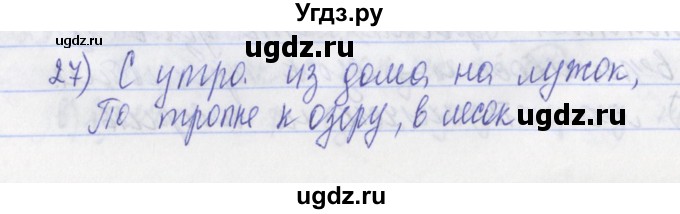 Угдз.ру
ugdz.ru ugdz.ru
27) С утра из дома на лужок,
По тропке к озеру, в лесок ugdz.ru
ugdz.ru ugdz.ru
Угдз.ру